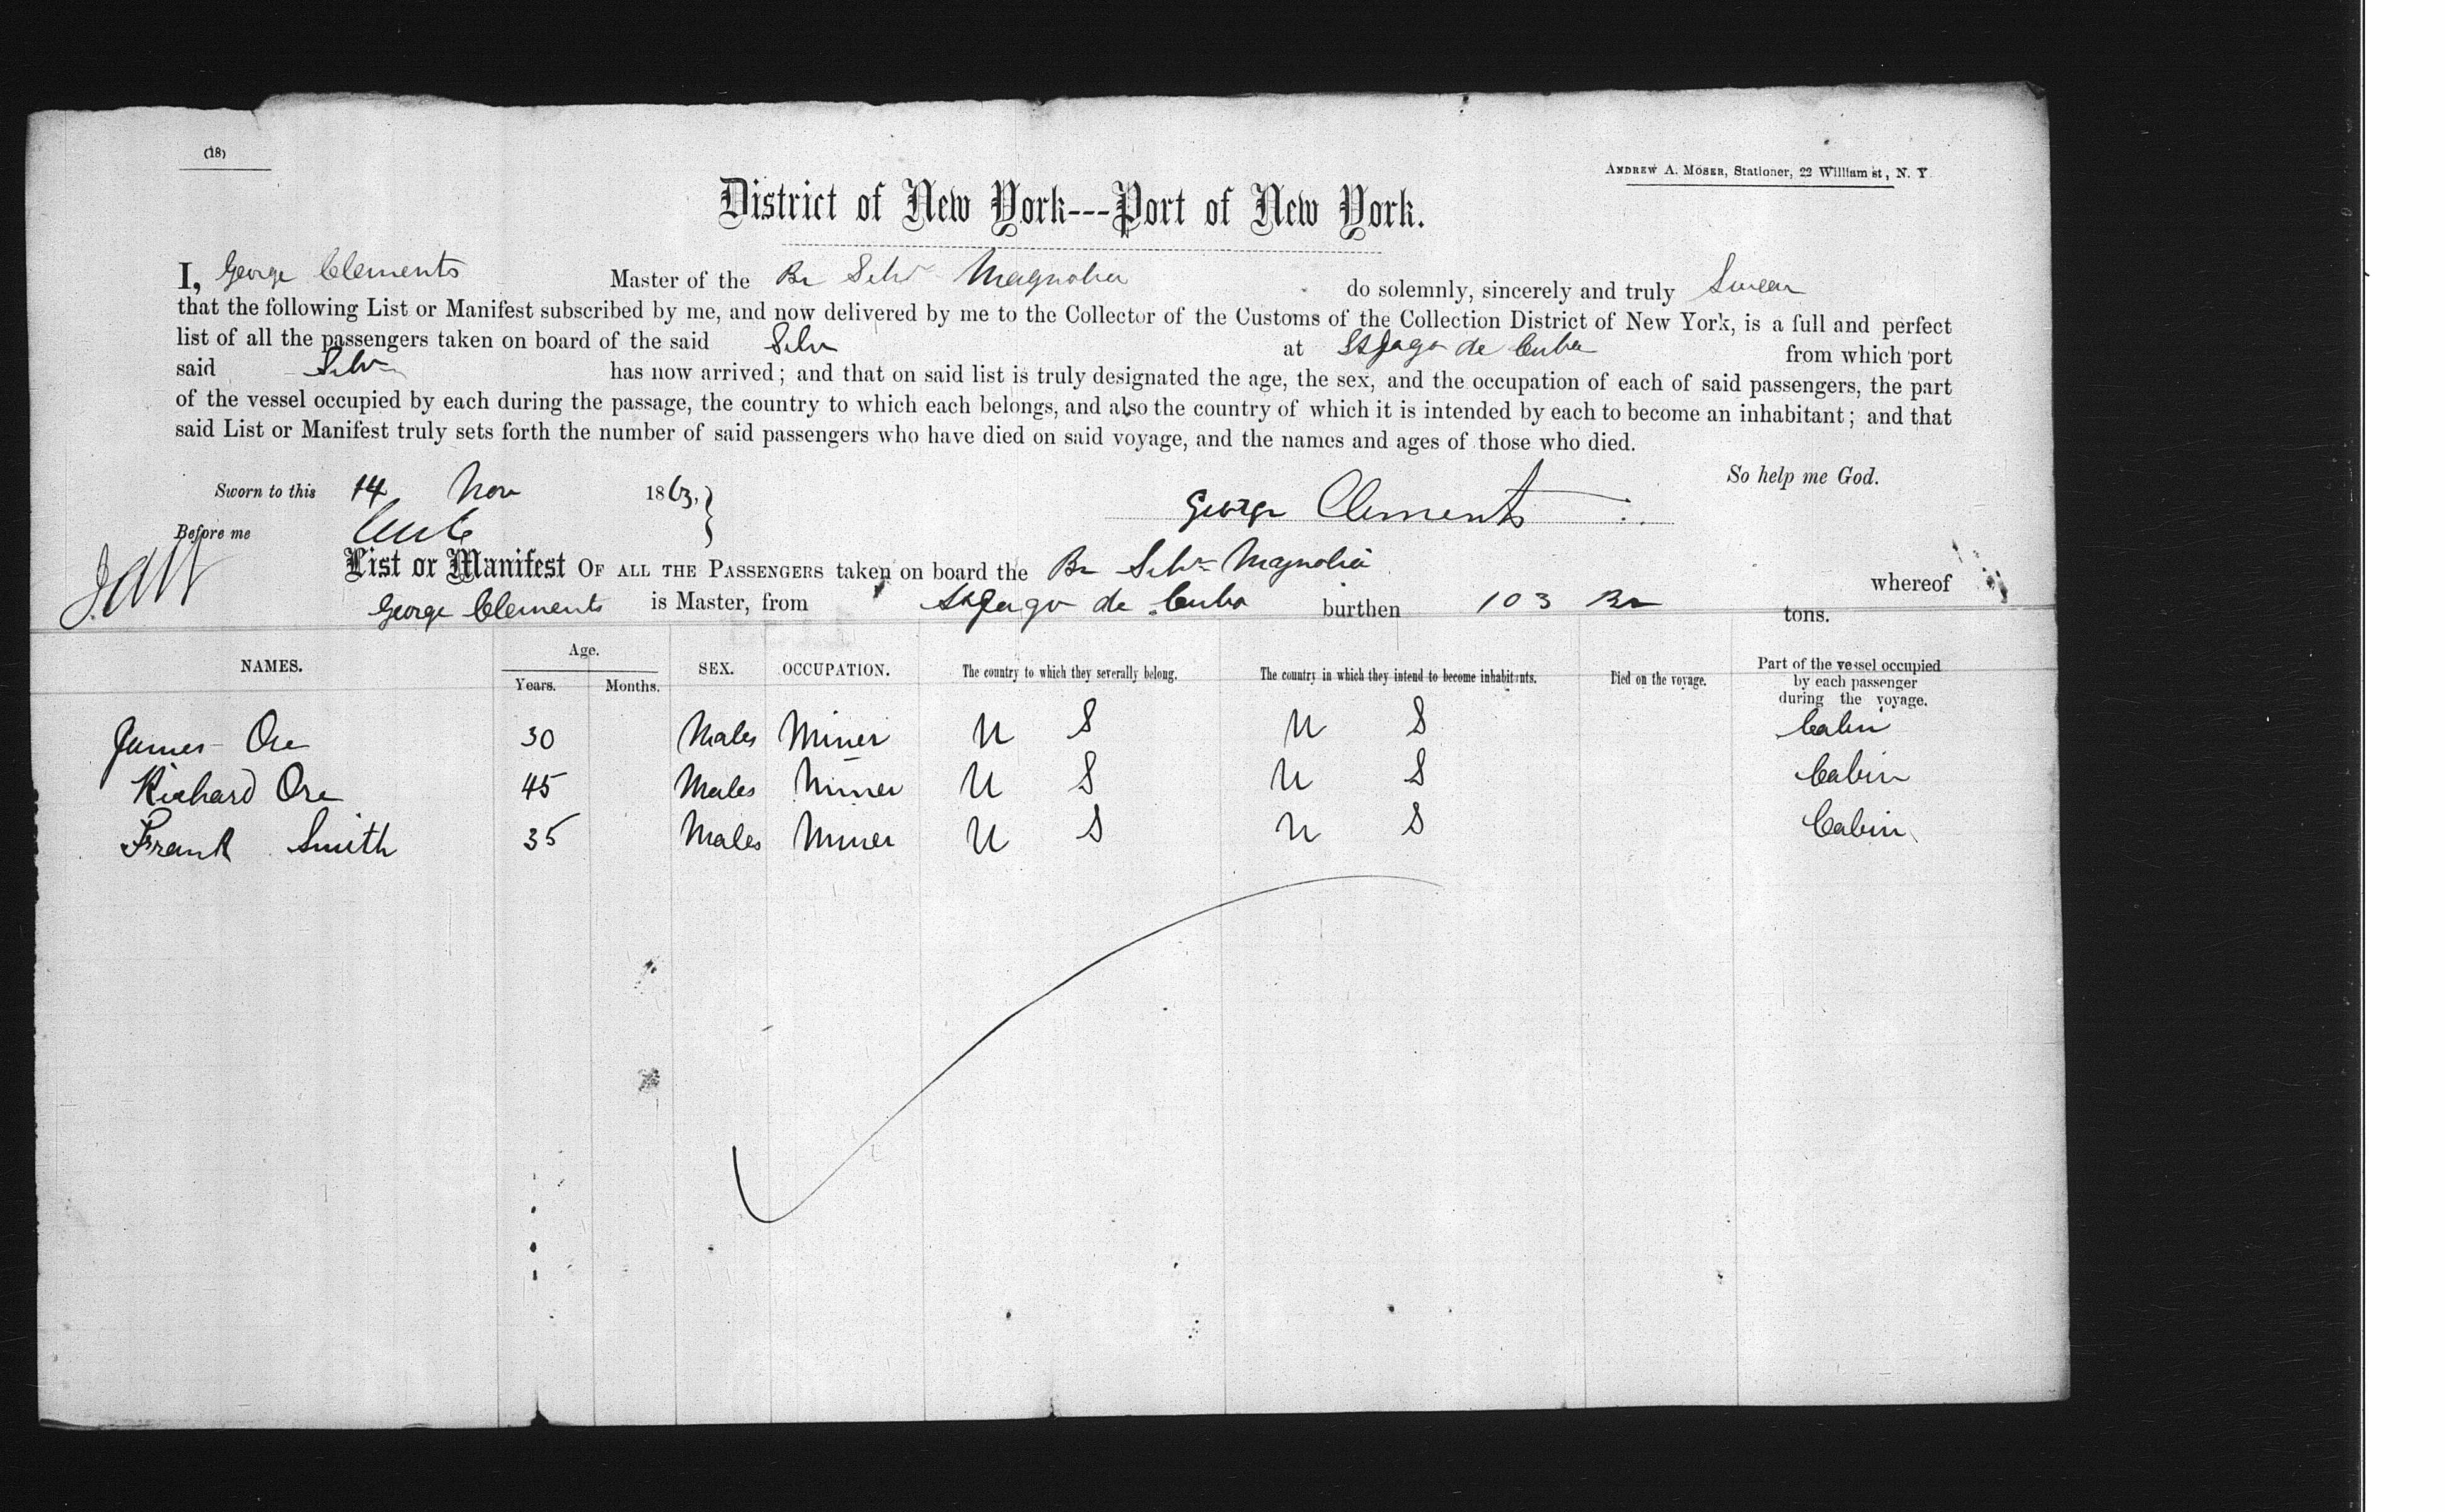 (18)
ANDREW A. MOSER, Stationer, 22 William st, N. Y.
District of New York---Port of New York.
I, George Clements Master of the Br Schr Magnolia do solemnly, sincerely and truly Swear
that the following List or Manifest subscribed by me, and now delivered by me to the Collector of the Customs of the Collection District of New York, is a full and perfect
list of all the passengers taken on board of the said Schr at St Jago de Cuba from which port
said Schr has now arrived; and that on said list is truly designated the age, the sex, and the occupation of each of said passengers, the part
of the vessel occupied by each during the passage, the country to which each belongs, and also the country of which it is intended by each to become an inhabitant; and that
said List or Manifest truly sets forth the number of said passengers who have died on said voyage, and the names and ages of those who died.
So help me God.
Sworn to this 14 Nov 1863,
George Clements
Before me
List or Manifest OF ALL THE PASSENGERS taken on board the Br Schr Magnolia whereof
George Clements is Master, from St Jago de Cuba burthen 103 Br tons.
NAMES. Age. Years. Months. SEX. OCCUPATION. The country to which they severally belong. The country in which they intend to become inhabitants. Died on the voyage. Part of the vessel occupied by each passenger during the voyage.
James Ore 30 Males Miner U S U S Cabin
Richard Ore 45 Males Miner U S U S Cabin
Frank Smith 35 Males Miner U S U S Cabin